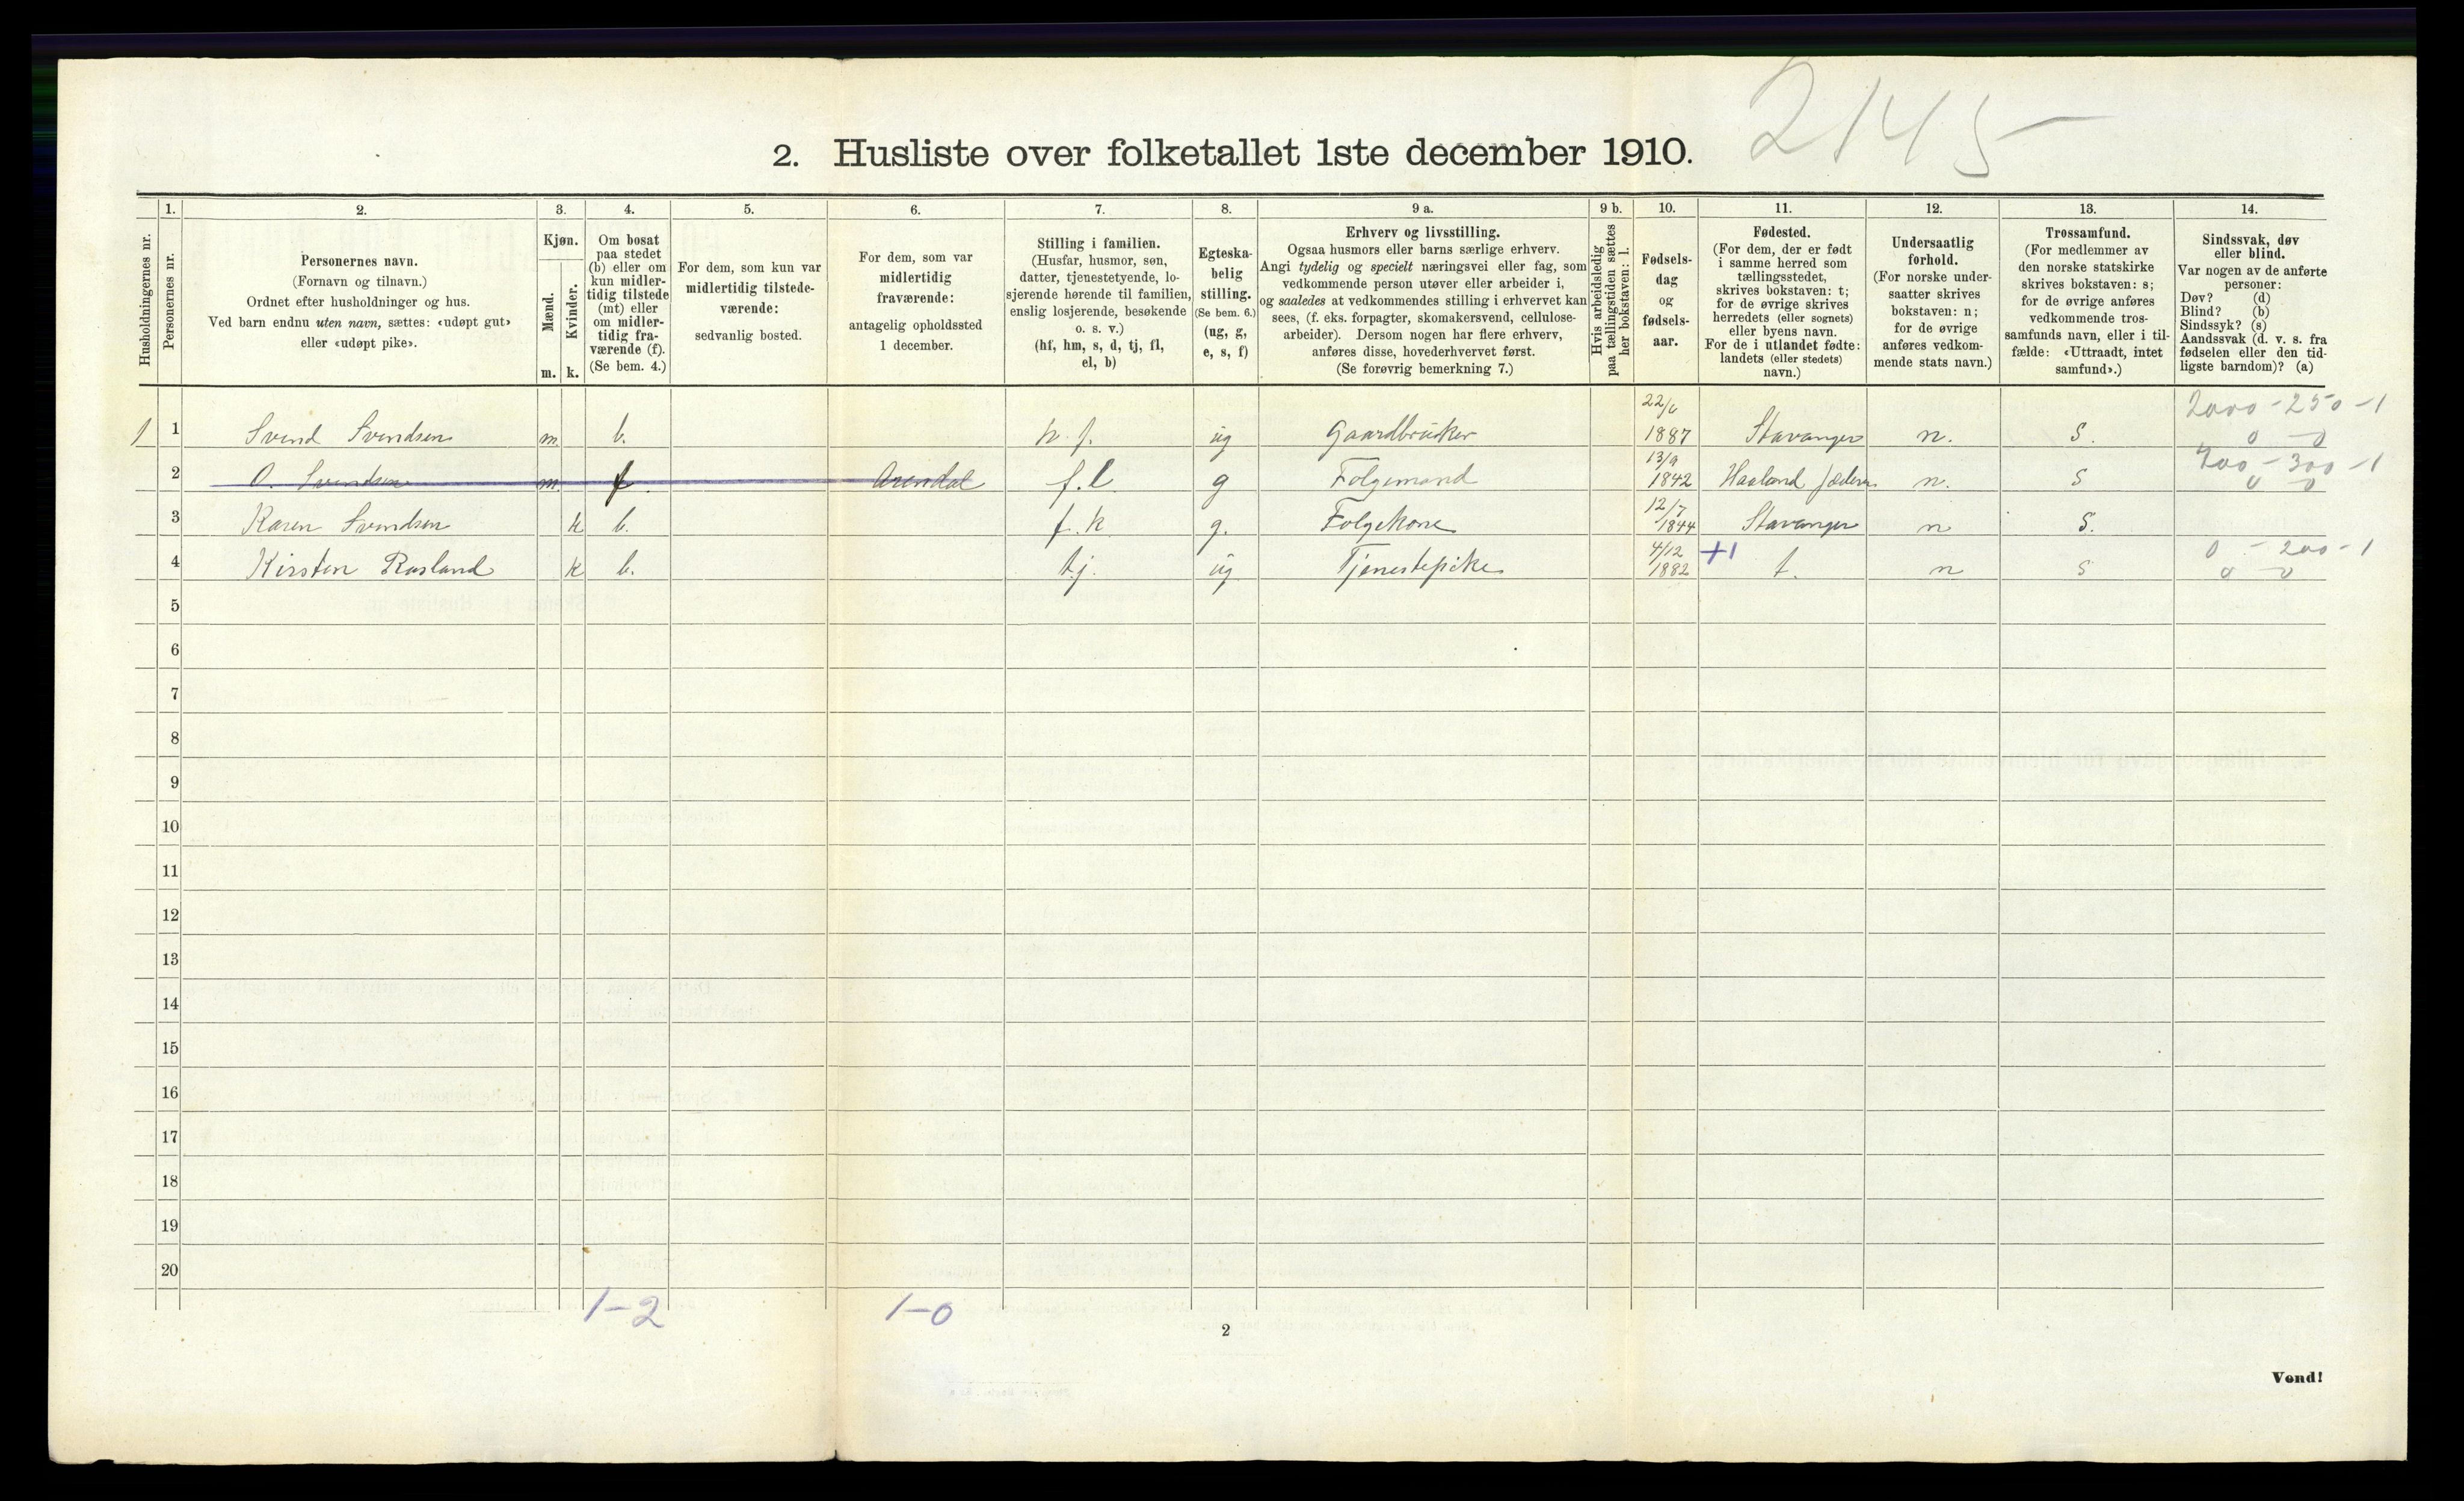 2145
2. Husliste over folketallet 1ste december 1910.
Husholdningernes nr.
1.
Personernes nr.
2.
Personernes navn.
(Fornavn og tilnavn.)
Ordnet efter husholdninger og hus.
Ved barn endnu uten navn, sættes: «udøpt gut»
eller «udøpt pike».
3.
Kjøn.
Mænd.
Kvinder.
m. k.
4.
Om bosat
paa stedet
(b) eller om
kun midler-
tidig tilstede
(mt) eller
om midler-
tidig fra-
værende (f).
(Se bem. 4.)
5.
For dem, som kun var
midlertidig tilstede-
værende:
sedvanlig bosted.
6.
For dem, som var
midlertidig
fraværende:
antagelig opholdssted
1 december.
7.
Stilling i familien.
(Husfar, husmor, søn,
datter, tjenestetyende, lo-
sjerende hørende til familien,
enslig losjerende, besøkende
o. s. v.)
(hf, hm, s, d, tj, fl,
el, b)
8.
Egteska-
belig
stilling.
(Se bem. 6.)
(ug, g,
e, s, f)
9 a.
Erhverv og livsstilling.
Ogsaa husmors eller barns særlige erhverv.
Angi tydelig og specielt næringsvei eller fag, som
vedkommende person utøver eller arbeider i,
og saaledes at vedkommendes stilling i erhvervet kan
sees, (f. eks. forpagter, skomakersvend, cellulose-
arbeider). Dersom nogen har flere erhverv,
anføres disse, hovederhvervet først.
(Se forøvrig bemerkning 7.)
9 b.
Hvis arbeidsledig
paa tællingstiden sættes
her bokstaven: l.
10.
Fødsels-
dag
og
fødsels-
aar.
11.
Fødested.
(For dem, der er født
i samme herred som
tællingsstedet,
skrives bokstaven: t;
for de øvrige skrives
herredets (eller sognets)
eller byens navn.
For de i utlandet fødte:
landets (eller stedets)
navn.)
12.
Undersaatlig
forhold.
(For norske under-
saatter skrives
bokstaven: n;
for de øvrige
anføres vedkom-
mende stats navn.)
13.
Trossamfund.
(For medlemmer av
den norske statskirke
skrives bokstaven: s;
for de øvrige anføres
vedkommende tros-
samfunds navn, eller i til-
fælde: «Uttraadt, intet
samfund».)
14.
Sindssvak, døv
eller blind.
Var nogen av de anførte
personer:
Døv? (d)
Blind? (b)
Sindssyk? (s)
Aandssvak (d. v. s. fra
fødselen eller den tid-
ligste barndom)? (a)
22/6 2000 - 250 - 1
1 1 Svend Svendsen m. b. h.f. ug Gaardbruker 1887 Stavanger n. S. 0 - 0
13/9 400 - 300 - 1
2 O. Svendsen m. f Arendal f.l g Folgemand 1842 Haaland Jæderen n. S 0 - 0
12/7
3 Karen Svendsen k b. f.k g. Folgekone 1844 Stavanger n S.
4/12 +1 0 - 200 - 1
4 Kirsten Rasland k b. tj. ug Tjenestepike 1882 t. n S 0 - 0
5
6
7
8
9
10
11
12
13
14
15
16
17
18
19
20
1-2 1-0
2
Vend!